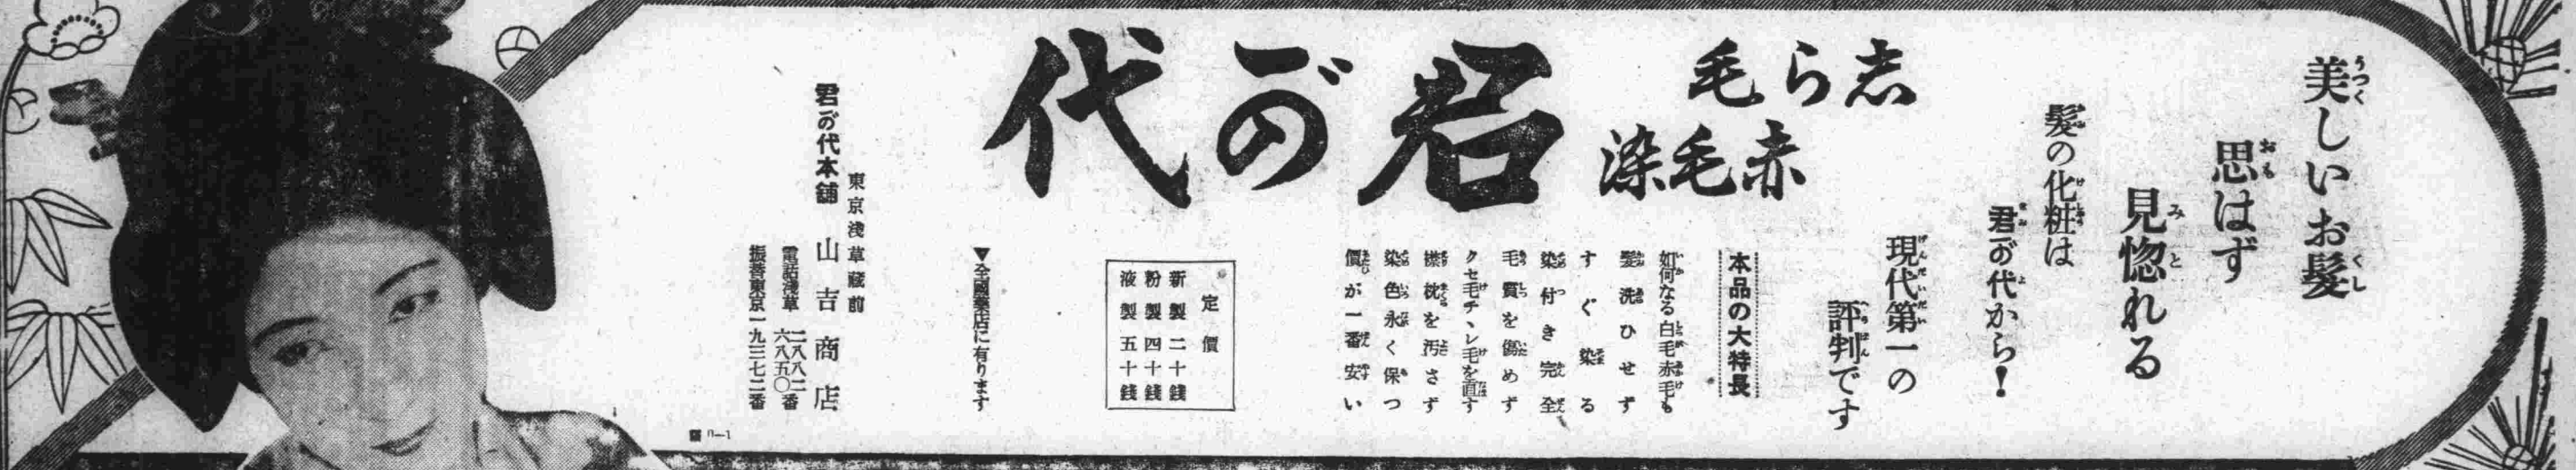 美しいお髪
思はず
見惚れる
髪の化粧は
君が代から!
現代第一の
評判です
志ら毛
赤毛染
君が代
本品の大特長
如何なる白毛赤毛も
髪洗ひせず
すぐ染る
染付き完全
毛質を傷めず
クセ毛チヾレ毛を直す
襟枕を汚さず
染色永く保つ
價が一番安い
定價
新製二十銭
粉製四十銭
液製五十銭
▼全國藥店に有ります
東京淺草蔵前
君が代本舗 山吉商店
電話淺草 二八八二番
六八五〇番
振替東京一九三七二番